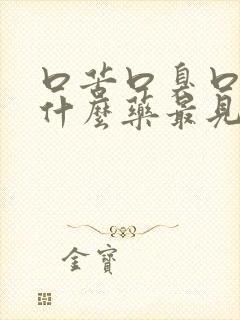 口苦口臭口
什麼藥最見
金寶